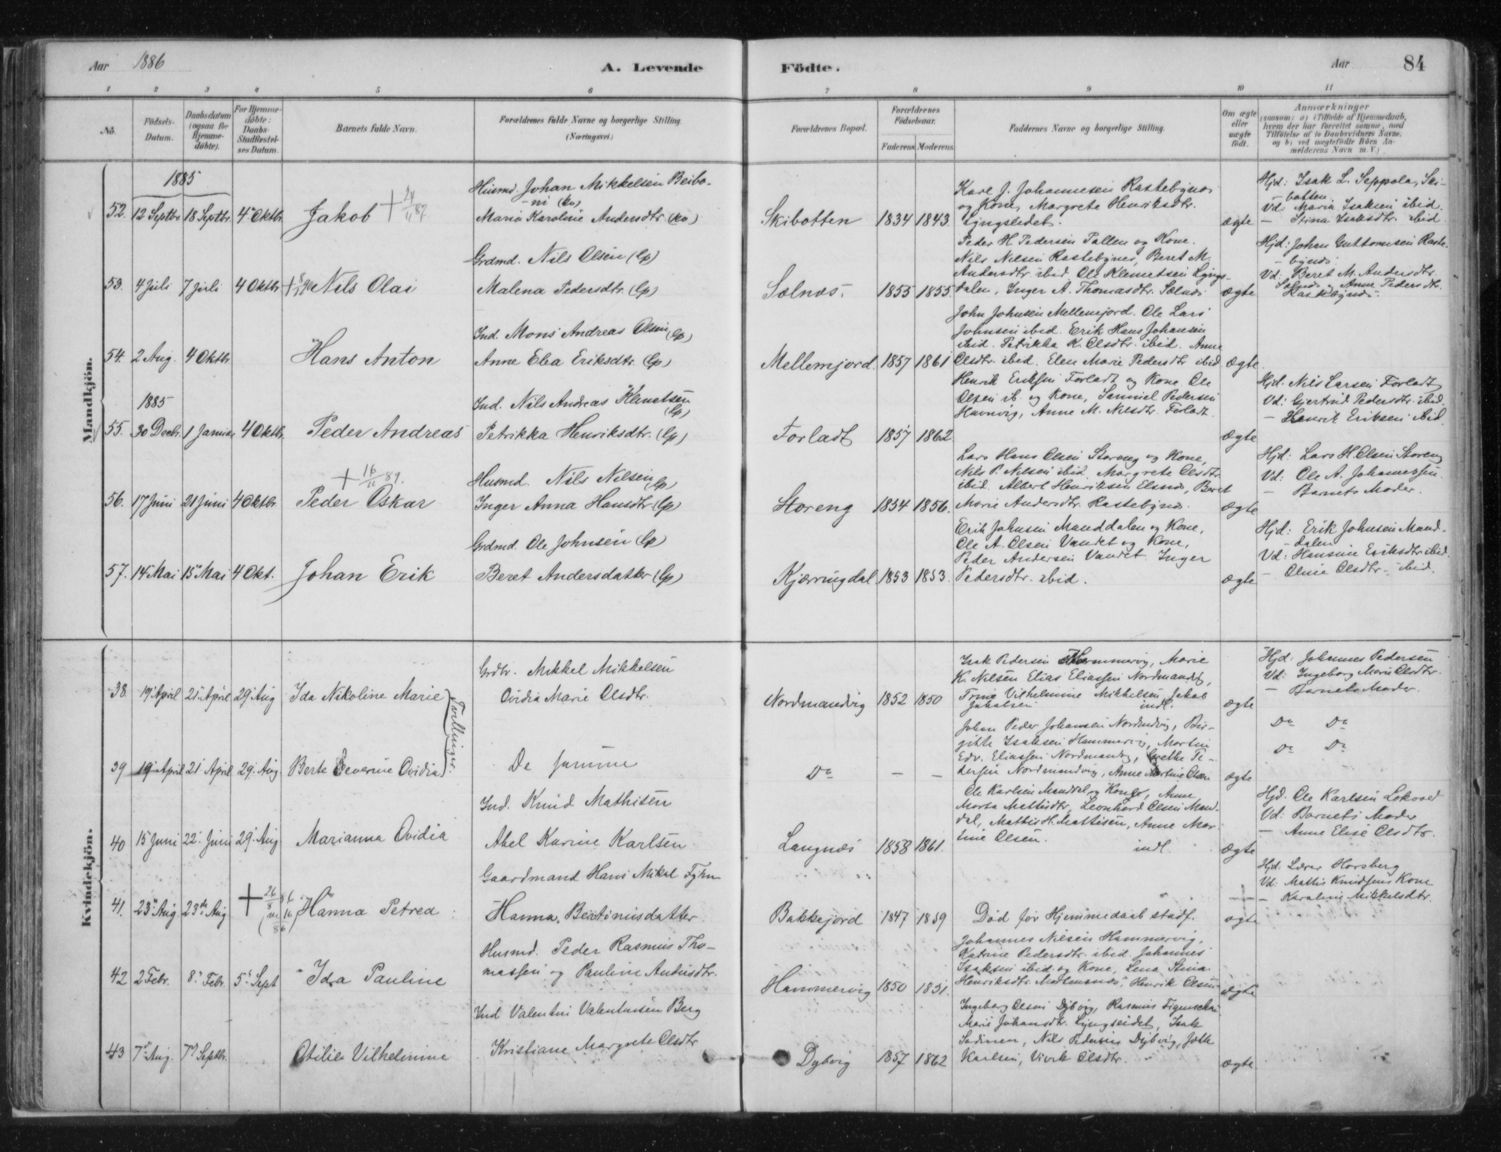 Aar 1886 A. Levende Födte. Aar 84
1 2 3 4 5 6 7 8 9 10 11
No. Födsels-Datum. Daabsdatum (ogsaa for Hjemmedøbte). For Hjemmedöbte: Daabs-Stadfæstelses Datum. Barnets fulde Navn. Forældrenes fulde Navne og borgerlige Stilling. (Næringsvei.) Forældrenes Bopæl. Forældrenes Födselsaar. Faderens. Moderens. Faddernes Navne og borgerlige Stilling. Om ægte eller uægte födt. Anmærkninger
Mandkjön.
1885
52. 12 Septbr 18 Septbr. 4 Oktbr. Jakob
Husmd. Johan Mikkelsen Beibo-
ni (Kv)
Maria Karolina Andersdtr. (Kv)
Skibotten 1834 1843
Karl J. Johannesen Rastebynæs
og Kone, Margrete Henriksdtr.
Lyngseidet.
ægte
Hjd: Isak L. Seppola, Ski-
botten
Vd: Maria Isaksen ibid.
— Stina Isaksdtr. ibid.
53. 4 Juli 7 Juli 4 Oktbr. Nils Olai
Grdmd. Nils Olsen (Lp)
Malena Pedersdtr. (Lp)
Sælnæs. 1855 1855.
Peder H. Pedersen Pallen og Kone.
Nils Nilsen Rastebynæs, Beret M.
Andersdtr. ibid. Ole Klemetsen Lyngs-
dalen, Inger A. Thomasdtr. Sælnæs
ægte
Hjd: Johan Guttormsen Raste-
bynæs
Vd: Beret M. Andersdtr.
Sælnæs og Anne Pedersdtr.
Rastebynæs.
54. 2 Aug. 4 Oktbr. Hans Anton
Ind. Mons Andreas Olsen (Lp)
Anne Elea Eriksdtr. (Lp)
Mellemjord. 1857 1861
John Johnsen Mellemjord. Ole Lars
Johnsen ibid. Erik Hans Johansen
ibid. Petrikka K. Olsdtr. ibid. Anne
Olsdtr. ibid. Elen Marie Pedersdtr. ibid
ægte
1885
55. 30 Decbr. 1 Januar 4 Oktbr. Peder Andreas
Ind. Nils Andreas Klemetsen (Lp)
Petrikka Henriksdtr. (Lp)
Forladt 1857 1862
Henrik Eriksen Forladt og Kone, Ole
Olsen ib. og Kone, Samuel Pedersen
Havnvig, Anne M. Nilsdtr. Forladt.
ægte
Hjd: Nils Larsen Forladt,
Vd: Gjertrud Pedersdtr. ibid.
— Henrik Eriksen ibid.
56. 17 Juni 21 Juni 4 Oktbr. Peder Oskar
Husmd. Nils Nilsen (Lp)
Inger Anna Hansdtr. (Lp)
Storeng 1854 1856.
Lars Hans Olsen Storeng og Kone,
Nils P. Nilsen ibid. Margrete Olsdtr.
ibid. Albert Henriksen Elsnæs, Beret
Marie Andersdtr. Rastebynæs.
ægte
Hjd: Lars H. Olsen Storeng
Vd: Ole A. Johannessen
— Barnets Moder.
57. 14 Mai 15 Mai 4 Okt. Johan Erik
Grdmd. Ole Johnsen (Lp)
Beret Andersdatter (Lp)
Kjærringdal 1853 1853.
Erik Johnsen Manddalen og Kone,
Ole A. Olsen Vandet og Kone,
Peder Andersen Vandet. Inger
Pedersdtr. ibid.
ægte
Hjd: Erik Johnsen Mand-
dalen
Vd: Hansine Eriksdtr. ibid.
— Oline Olsdtr. ibid.
Kvindekjön.
38 19 April 21 April 29 Aug Ida Nikoline Marie
Grdbr. Mikkel Mikkelsen
Ovidia Marie Olsdtr.
Nordmandvig 1852 1850
Isak Pedersen Hammervig, Marie
K. Nilsen Elias Eliassen Nordmandvg,
Trine Vilhelmine Mikkelsen, Jakob
Jakobsen indl.
ægte
Hjd: Johannes Pedersen
Vd: Ingeborg Marie Olsdtr.
— Barnets Moder.
Tvillinger.
39 19 April 21 April 29. Aug Berte Severine Ovidia
De samme
Do — —
Johan Peder Johansen Nordmdvig, Bir-
gitte Isaksen Hammervig, Morten
Edv. Eliassen Nordmandvg, Grethe Pe-
dersen Nordmandvig, Anne Martine Olsen
ægte
Do Do
Do Do
40 15 Juni 22 Juni 29 Aug Marianna Ovidia
Ind. Knud Mathisen
Abel Karine Karlsen
Langnæs 1858 1861
Ole Karlsen Manddal og Kone, Anne
Marta Mattisdtr, Leonhard Olsen Mand-
dal, Mathis H. Mathisen, Anne Mar-
ine Olsen. indl.
ægte
Hjd. Ole Karlsen Lokvoll
Vd: Barnets Moder
— Anne Elise Olsdtr.
41. 23 Aug 23de Aug Hanna Petrea
Gaardmand Hans Mikal Fyhn
Hanna Beatinusdatter
Bakkejord 1847 1859
Död før Hjemmedaab stadf.
ægte
Hjd Lærer Horsberg
Vd: Mattis Knudsens Kone
— Karoline Mikkelsdtr.
42 2 Febr. 8 Febr. 5 Sept Ida Pauline
Husmd. Peder Rasmus Tho-
massen og Pauline Antusdtr.
Hammervig 1850 1851.
Johannes Nilsen Hammervig,
Katrine Pedersdtr. ibid Johannes
Isaksen ibid og Kone, Lena Stina
Henriksdtr. Nordmannes, Henrik Olsen
ægte
43 7 Aug. 7 Septbr. Otilie Vilhelmine
Ind Valentin Valentinsen Berg
Kristiane Margrete Olsdtr
Dybvig 1857 1862
Ingeborg Olsen Dybvig, Rasmus
Marie Johansdtr. Lyngseidet, Isak
Nils Pedersen Dybvig,
Karlsen, Vivik Olsdtr.
ægte